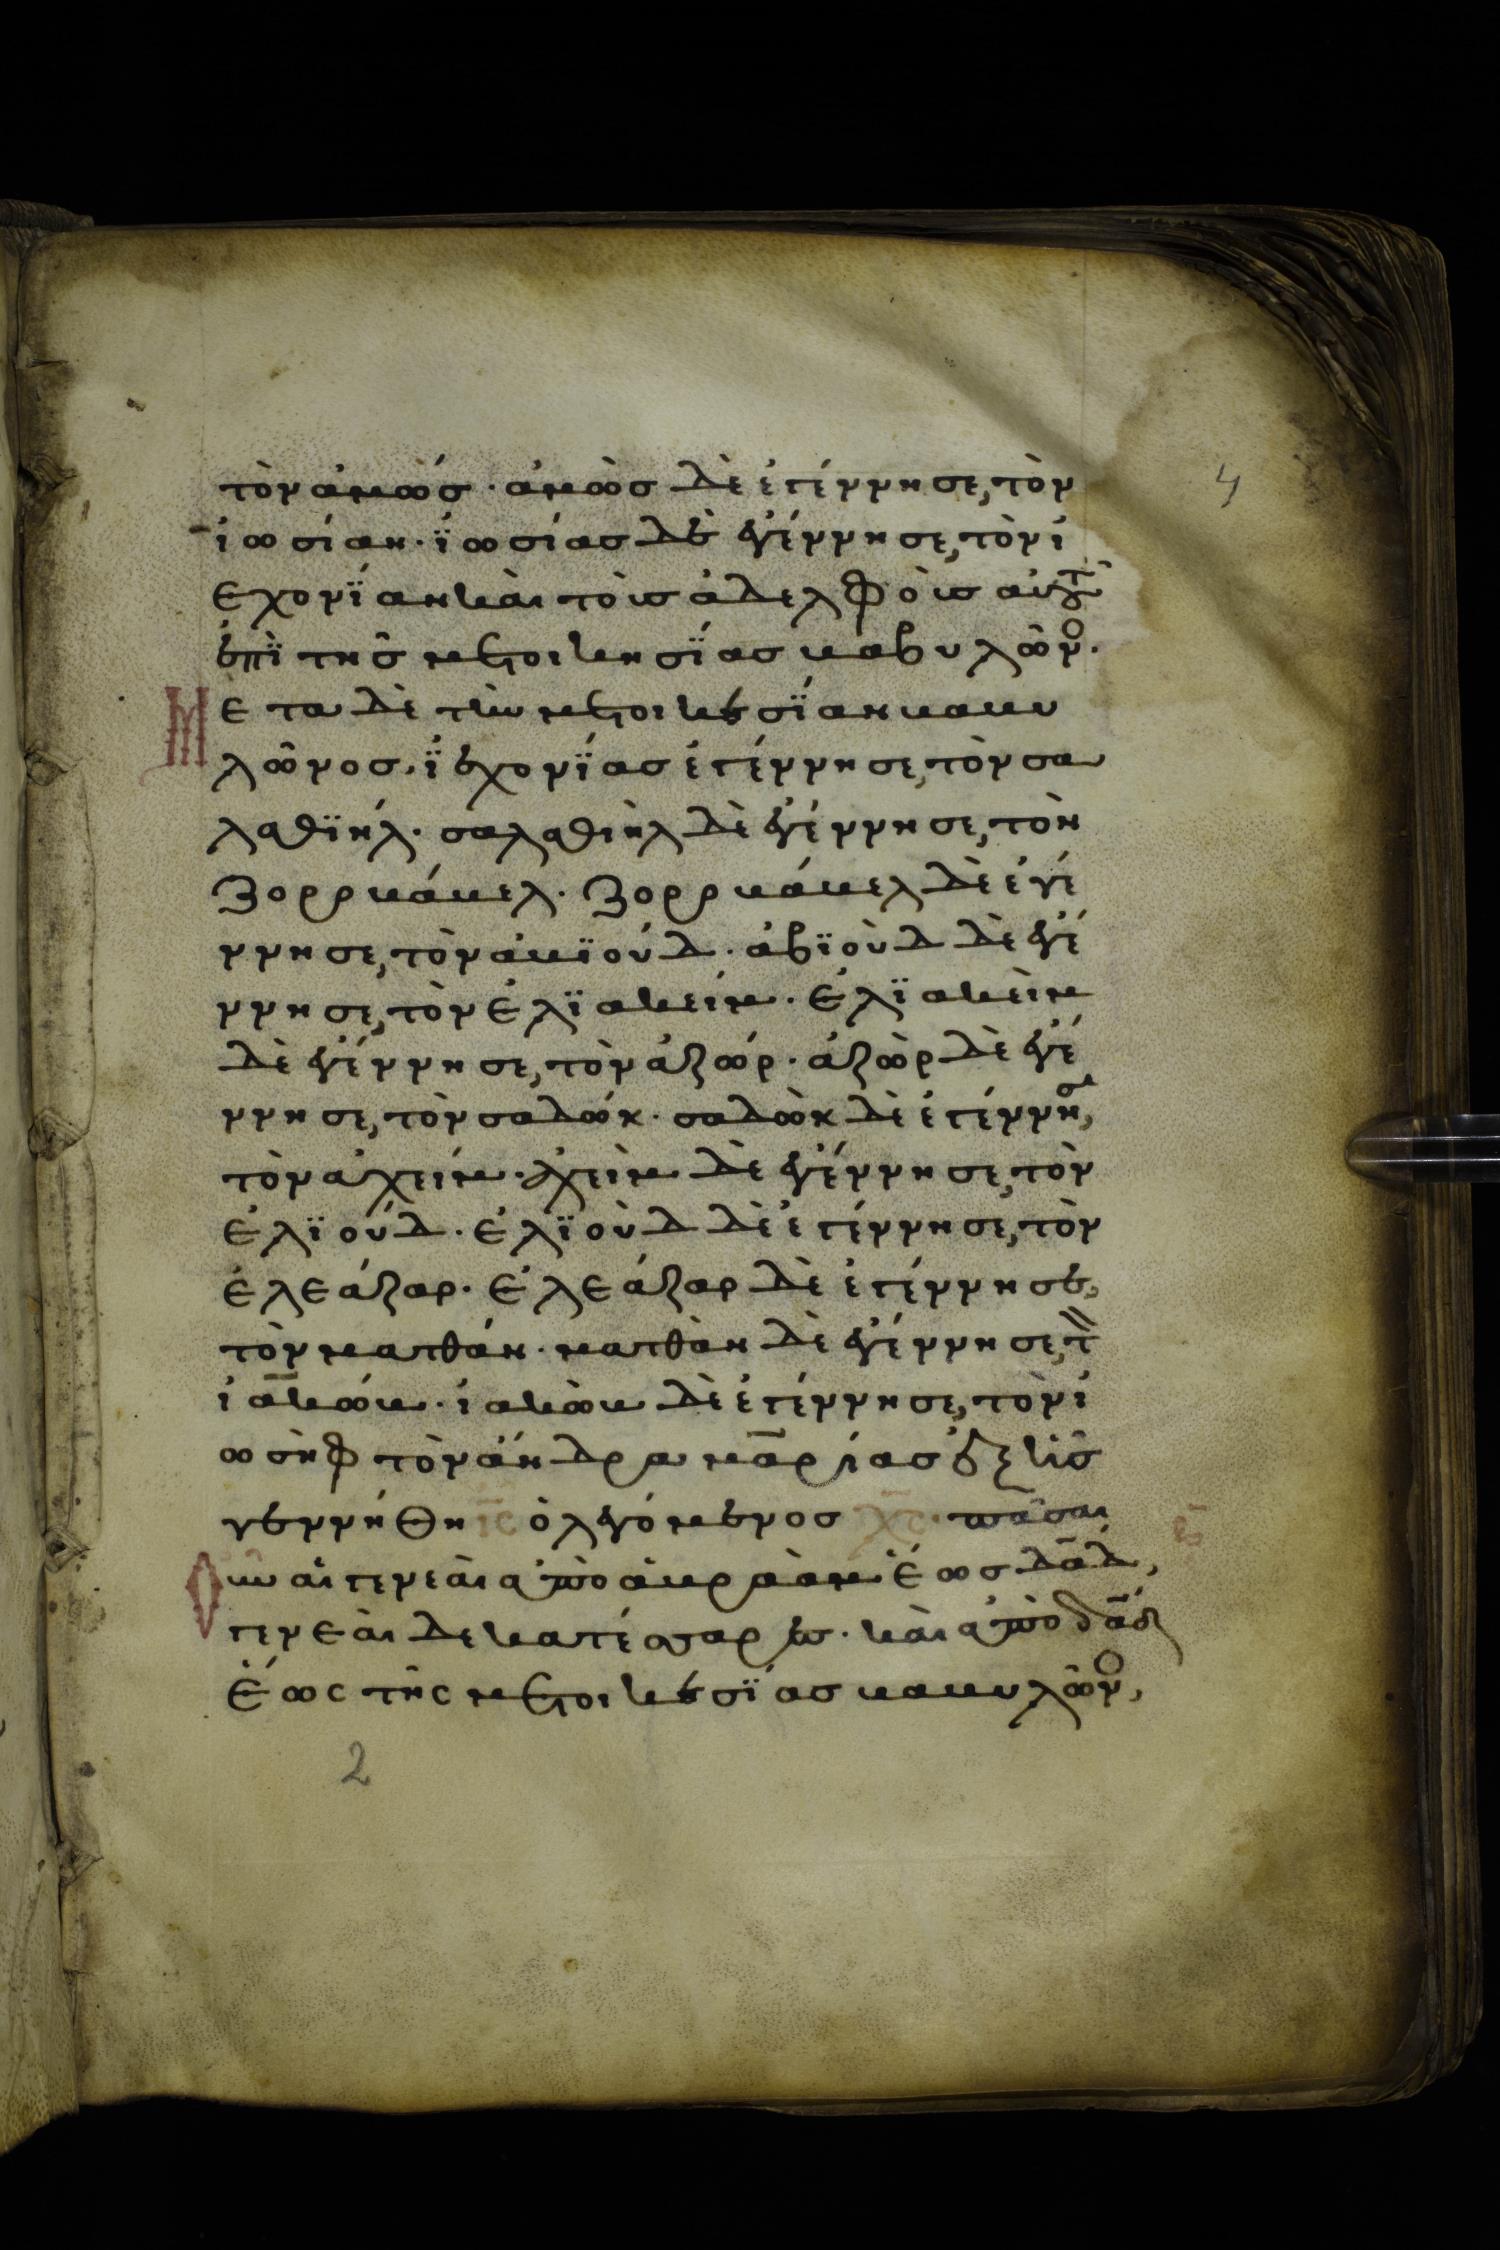 4
τὸν ἀμώς · ἀμὼς δὲ ἐγέννησε, τὸν
ἰωσίαν · ϊωσίας δὲ ἐγέννησε, τὸν ἰ
εχονΐαν καὶ τοὺς ἀδελφοὺς αὐτοῦ
ἐπῒ τῆς μετοικησΐας βαβυλῶνο.
Μετα δὲ τὴν μετοικεσΐαν βαβυ
λῶνος, ϊεχονΐας ἐγέννησε, τὸν σα
λαθϊήλ · σαλαθιὴλ δὲ ἐγέννησε, τὸν
ζορρβάβελ · ζορρβάβελ δὲ ἐγέ
ννησε, τὸν ἀβϊούδ · ἀβϊοὺδ δὲ ἐγέ
ννησε, τὸν ἐλϊακείμ · ἐλϊακεὶμ
δὲ ἐγέννησε, τὸν ἀζώρ · ἀζὼρ δὲ ἐγέ
ννησε, τὸν σαδώκ · σαδὼκ δὲ ἐγέννησε,
τὸν ἀχείμ · ἀχεὶμ δὲ ἐγέννησε, τὸν
ἐλϊούδ · ἐλϊοὺδ δὲ ἐγέννησε, τὸν
ἐλεάζαρ · ἐλεάζαρ δὲ ἐγέννησε,
τὸν ματθάν · ματθὰν δὲ ἐγέννησε, τ̀
ἰακώβ · ἰακὼβ δὲ ἐγέννησε, τὸν ἰ
ωσὴφ τὸν ἄνδρα μαρίας ἐξ ἧς
γεννήθη ις ὁ λεγόμενος χς · πᾶσαι
Οὖν αἱ γενεαὶ ἀπὸ ἀβραὰμ ἕως δαδ,
γενεαὶ δεκατέσσαρες · καὶ ἀπὸ δαδ
ἕως τῆς μετοικεσΐας βαβυλῶνο,
2